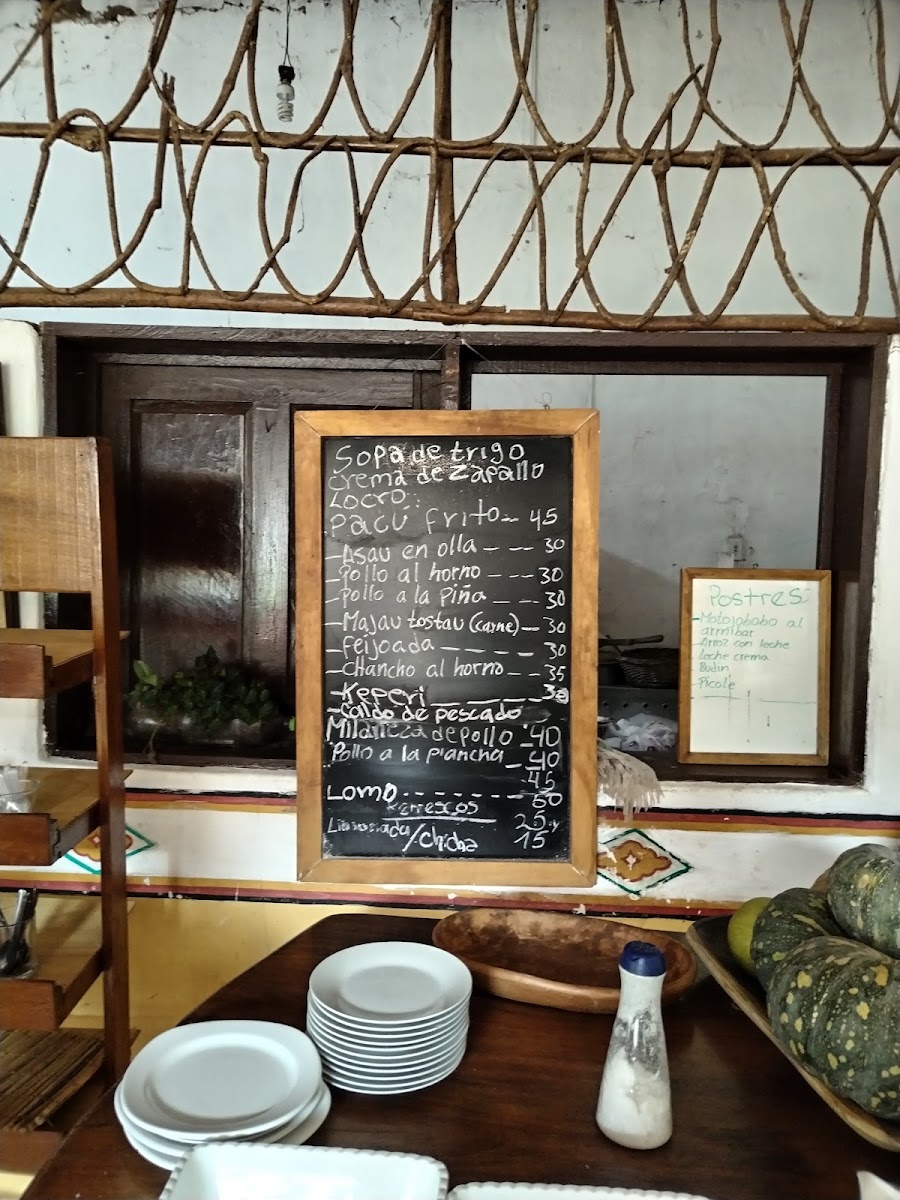 Sopa de trigo
crema de zapallo
Locro
Pacú frito - 45
- Asau en olla - - - 30
- Pollo al horno - - - 30
- Pollo a la Piña - - - 30
- Majau tostau (carne) - 30
- Feijoada - - - - - 30
- Chancho al horno - - 35
- Keperi - - - - - 30
- Caldo de pescado
Milaneza de pollo - 40
Pollo a la Plancha - 40
45
Lomo - - - - - - - 50
Refrescos
25 y
/chicha 15
Postres
- Motojobobo al
almibar
- Arroz con leche
- leche crema
- Budin
- Picolé